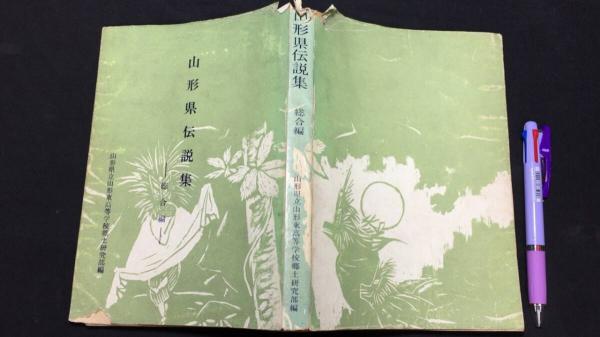 山形県伝説集
―総合編―
山形県立山形東高等学校郷土研究部編
山形県伝説集
総合編
山形県立山形東高等学校郷土研究部編